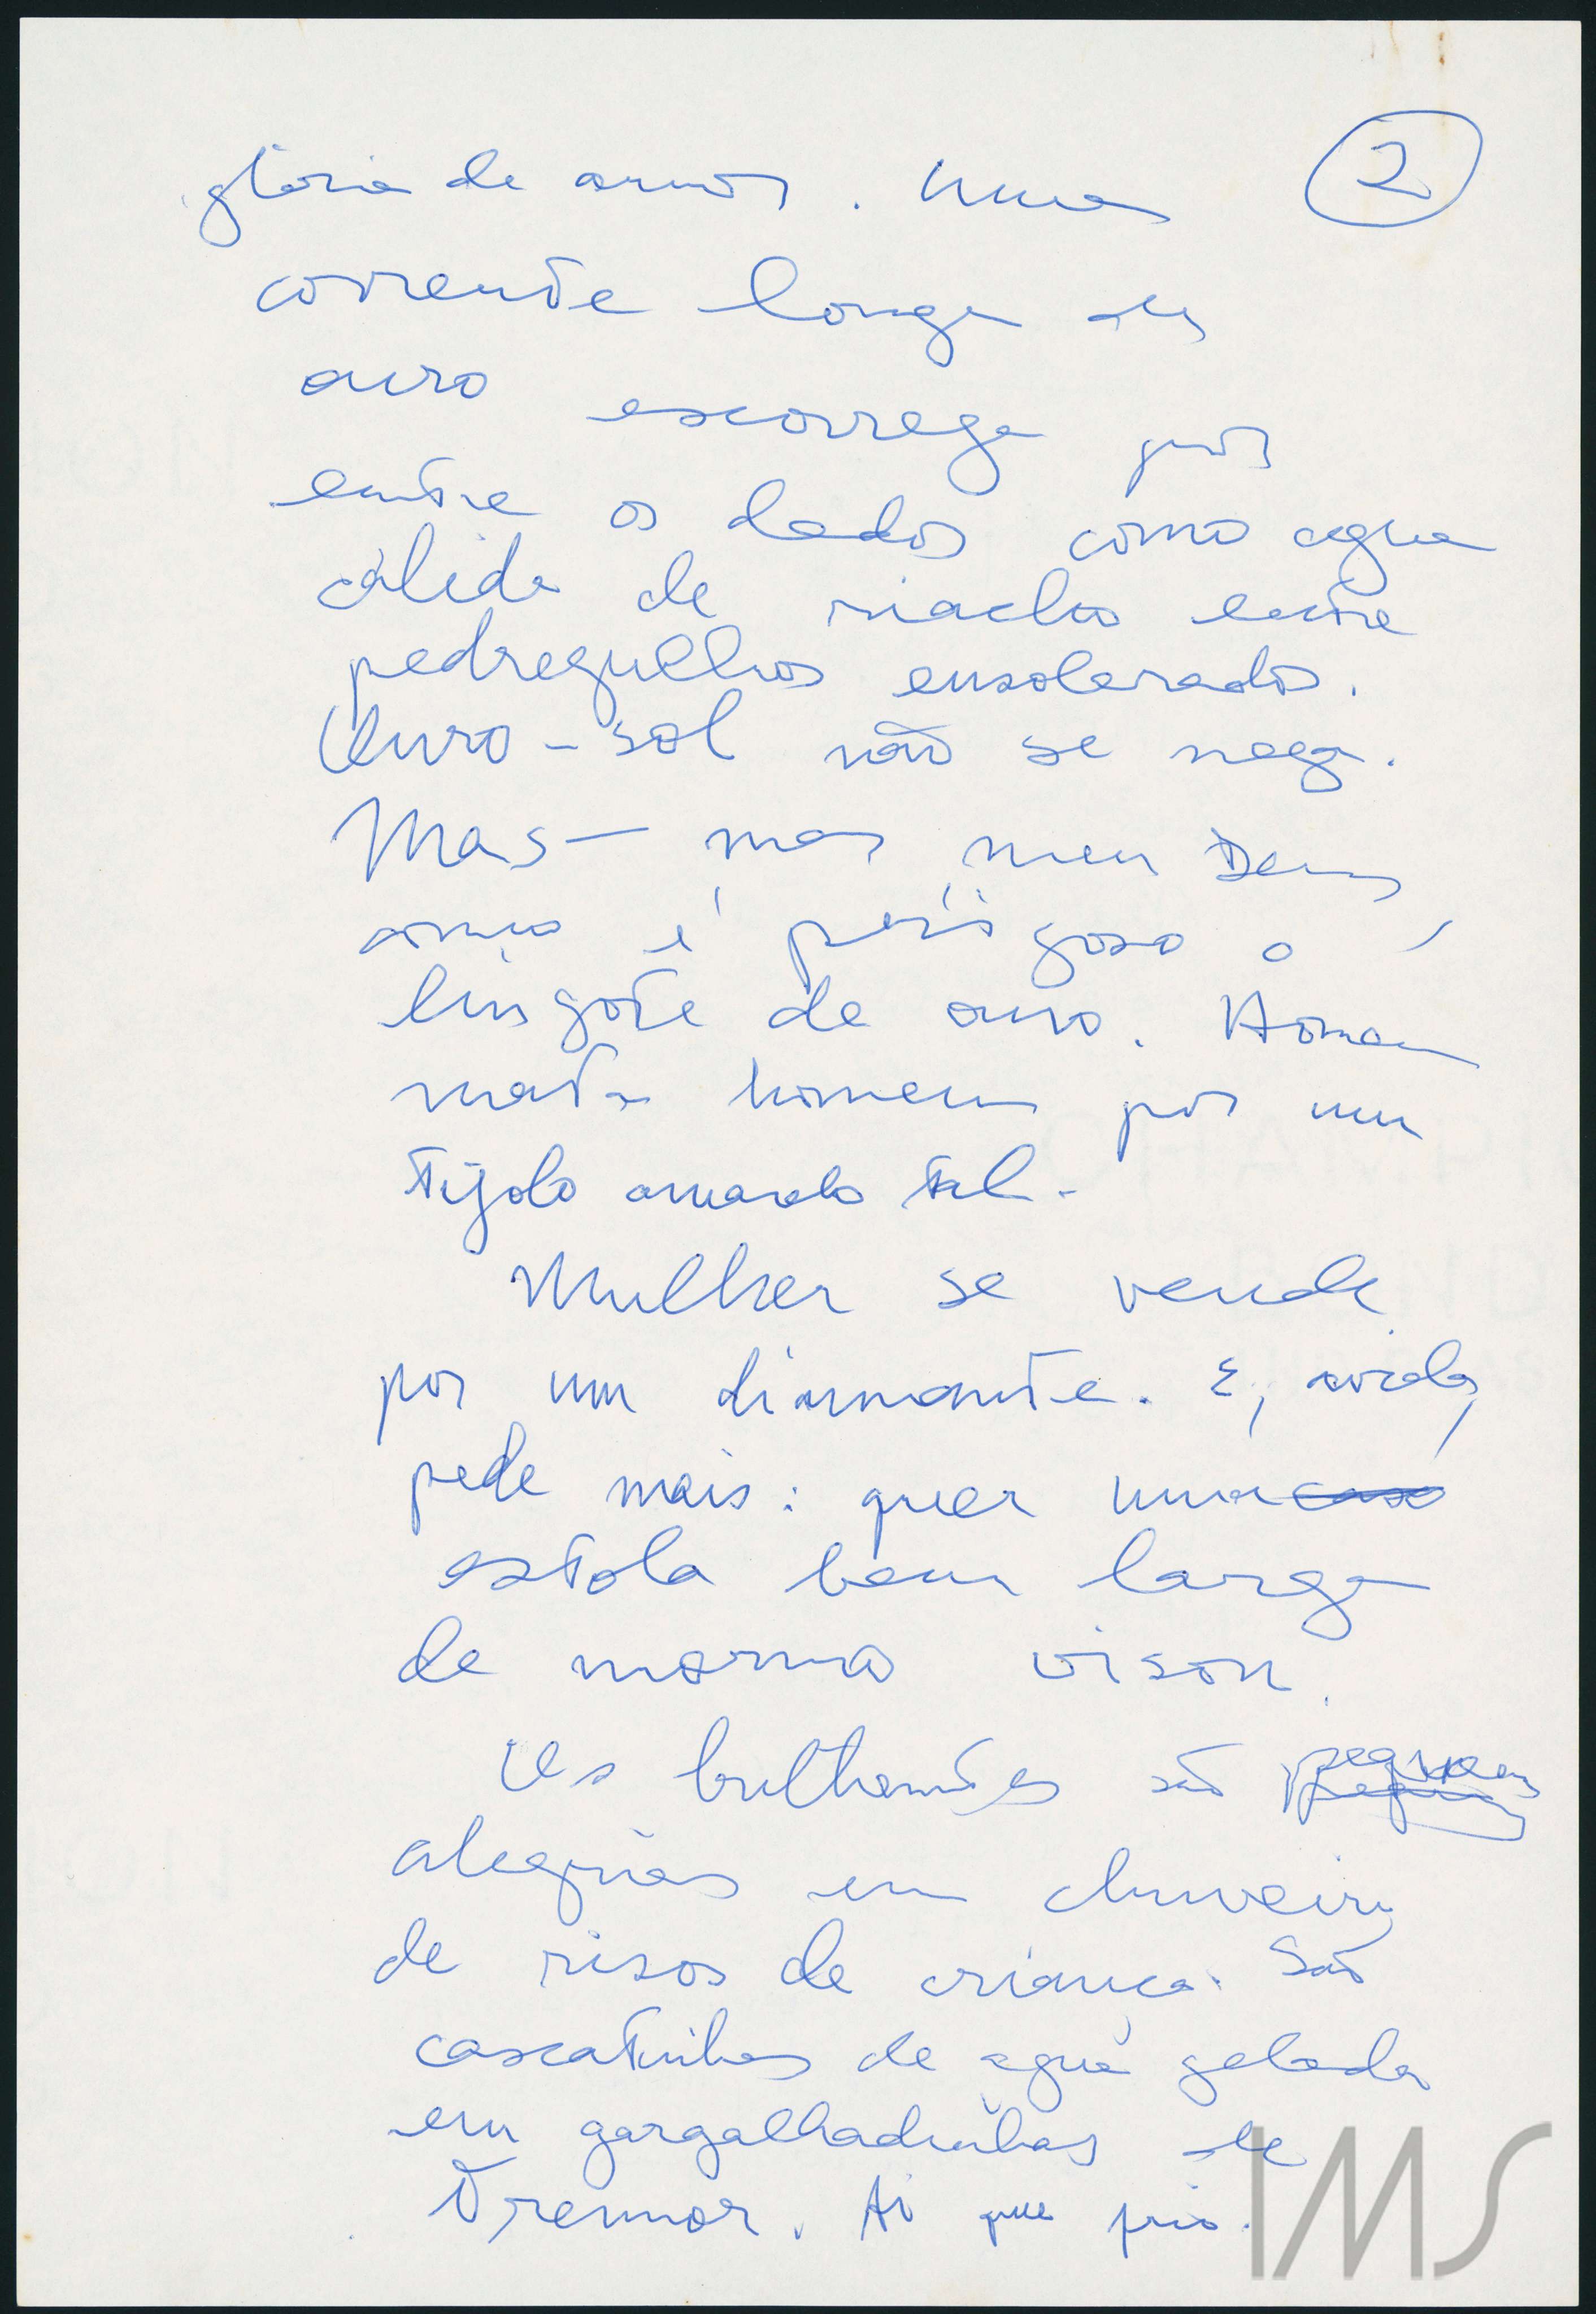 2
glória de amor. Uma
corrente longa de
ouro escorrega por
entre os dedos como agua
cálida de riacho entre
pedregulhos ensolarados.
Ouro-sol não se nega.
Mas — mas meu Deus,
como é perigoso o
lingote de ouro. Homem
mata homem por um
tijolo amarelo tal.
Mulher se vende
por um diamante. E, ávida,
pede mais: quer uma
estola bem larga
de morno vison.
Os brilhantes são pequenas
alegrias em chuveiro
de risos de criança. São
cascatinhas de agua gelada
em gargalhadinhas de
tremor. Ai que frio.
IMS